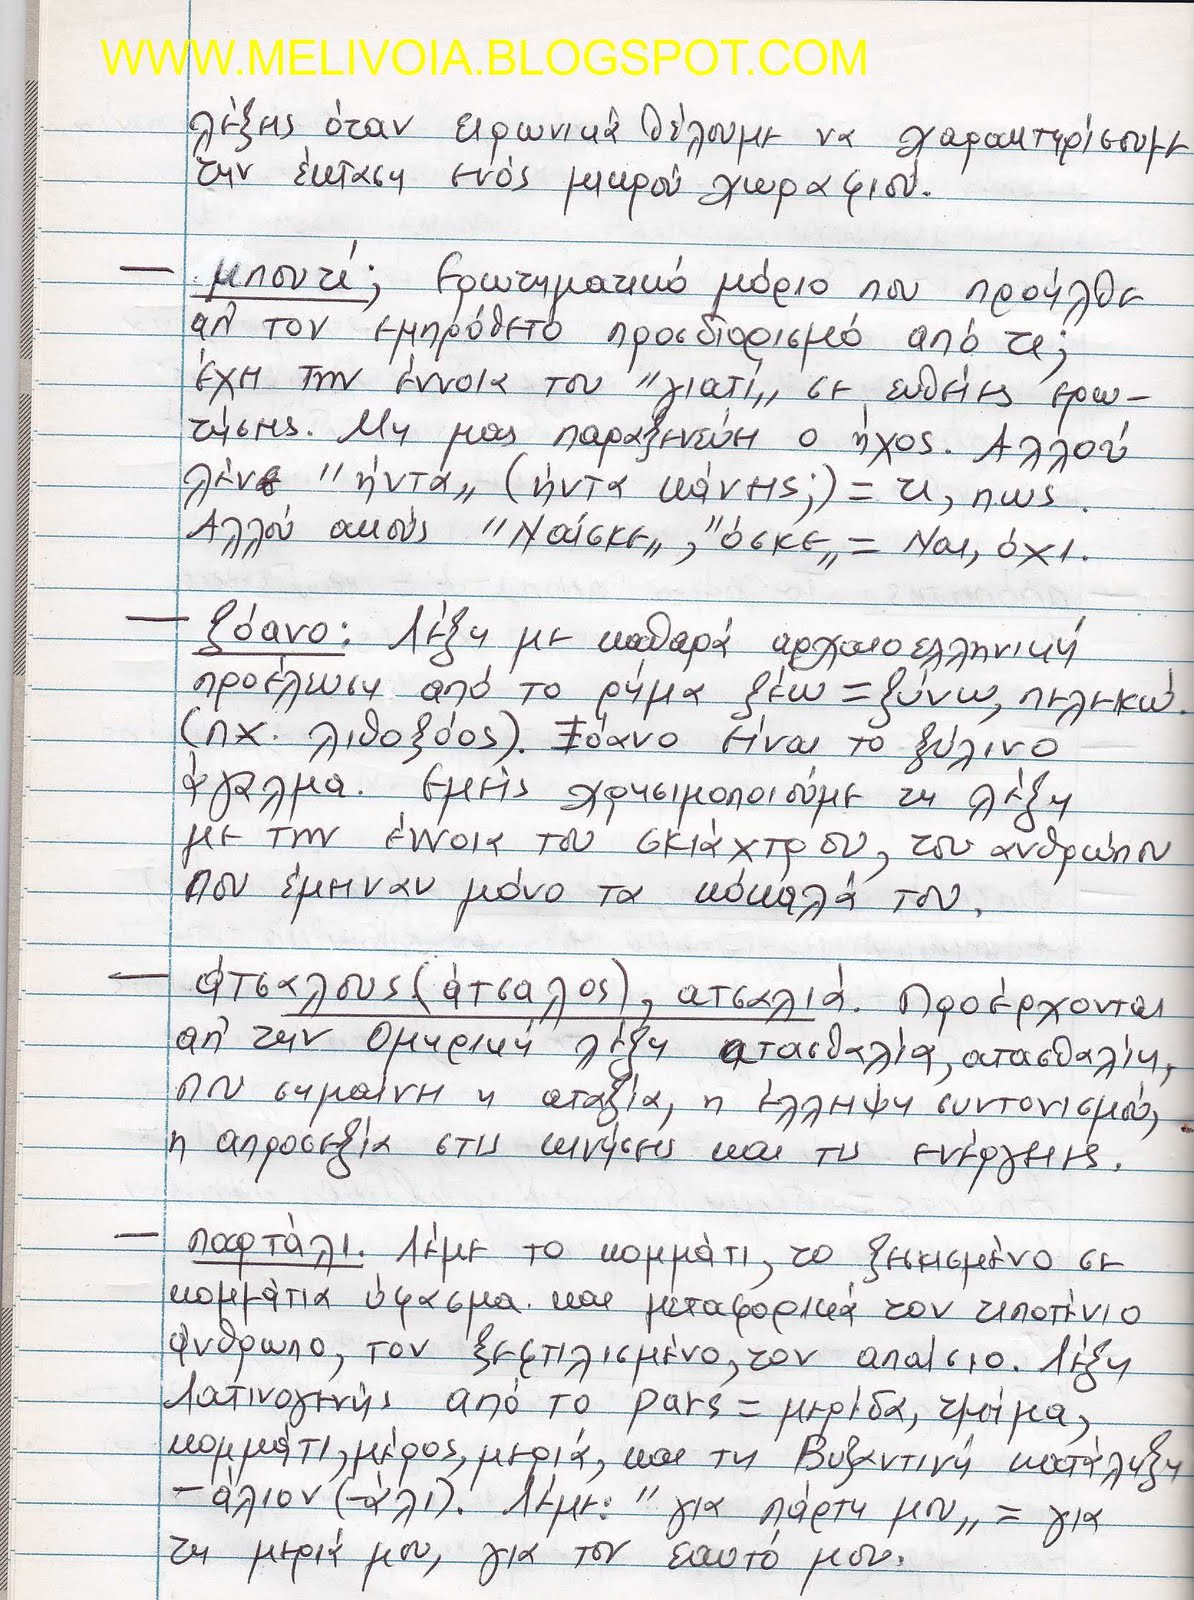 WWW.MELIVOIA.BLOGSPOT.COM
λέξης όταν ειρωνικά θέλουμε να χαρακτηρίσουμε
την έκταση ενός μικρού χωραφιού.
— μπουτί; Ερωτηματικό μόριο που προήλθε
απ' τον εμπρόθετο προσδιορισμό από τι;
έχει την έννοια του "γιατί" σε ευθείες ερω-
τήσεις. Μη μας παραξενεύει ο ήχος. Αλλού
λένε "ήντα" (ήντα κάνεις;) = τι, πως.
Αλλού ακούς "Ναίσκε", "όσκε" = Ναι, όχι.
— ξόανο: Λέξη με καθαρά αρχαιοελληνική
προέλευση από το ρήμα ξέω = ξύνω, πελεκώ.
(πχ. λιθοξόος). Ξόανο είναι το ξύλινο
άγαλμα. Εμείς χρησιμοποιούμε τη λέξη
με την έννοια του σκιάχτρου, του ανθρώπου
που έμειναν μόνο τα κόκαλά του.
— άτσαλους (άτσαλος), ατσαλιά. Προέρχονται
απ' την Ομηρική λέξη ατασθαλία, ατασθαλίη,
που σημαίνει η αταξία, η έλλειψη συντονισμού,
η απροσεξία στις κινήσεις και τις ενέργειες.
— παρτάλι. Λέμε το κομμάτι, το ξεσκισμένο σε
κομμάτια ύφασμα και μεταφορικά τον τιποτένιο
άνθρωπο, τον ξεφτιλισμένο, τον απαίσιο. Λέξη
Λατινογενής από το pars = μερίδα, τμήμα,
κομμάτι, μέρος, μεριά, και τη Βυζαντινή κατάληξη
-άλιον (-άλι). Λέμε: "για πάρτη μου" = για
τη μεριά μου, για τον εαυτό μου.